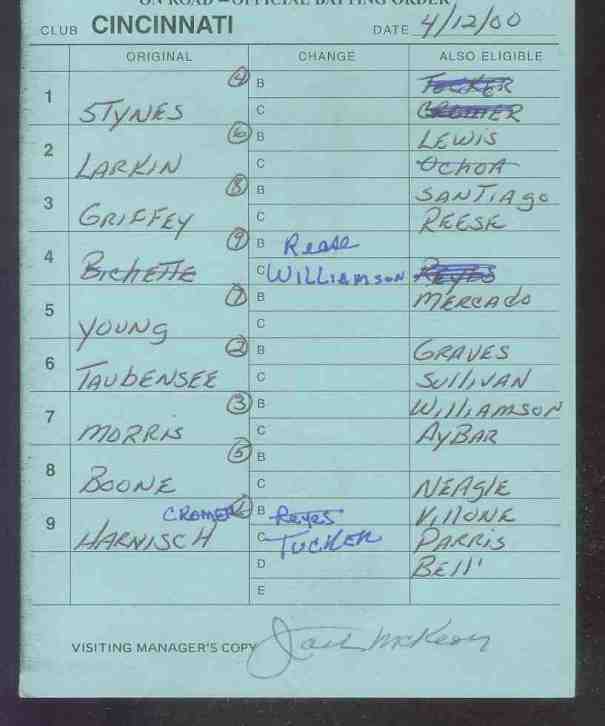 ON ROAD - OFFICIAL BATTING ORDER
CLUB CINCINNATI DATE 4/12/00
ORIGINAL CHANGE ALSO ELIGIBLE
1 STYNES 4 B TUCKER
C CROMER
2 LARKIN 6 B LEWIS
C OCHOA
3 GRIFFEY 8 B SANTIAGO
C REESE
4 BICHETTE 9 B Reese
C WILLIAMSON REYES
5 YOUNG 7 B MERCADO
C
6 TAUBENSEE 2 B GRAVES
C SULLIVAN
7 MORRIS 3 B WILLIAMSON
C AYBAR
8 BOONE 5 B
C NEAGLE
9 HARNISCH CROMER 1 B Reyes VILLONE
C TUCKER PARRIS
D BELL
E
VISITING MANAGER'S COPY Jack McKeon